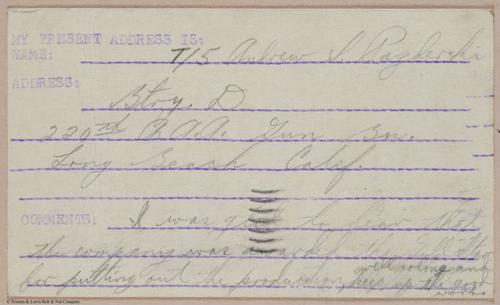 MY PRESENT ADDRESS IS:
NAME: T/5 Andrew S.
ADDRESS:
Btry. D
220th C.A.A. Gun Bn.
Long Beach Calif.
COMMENTS: I was glad to hear that
the company was awarded the
for putting out the production, keep up the good
work.
© Pioneer & Lewis Bolt & Nut Company